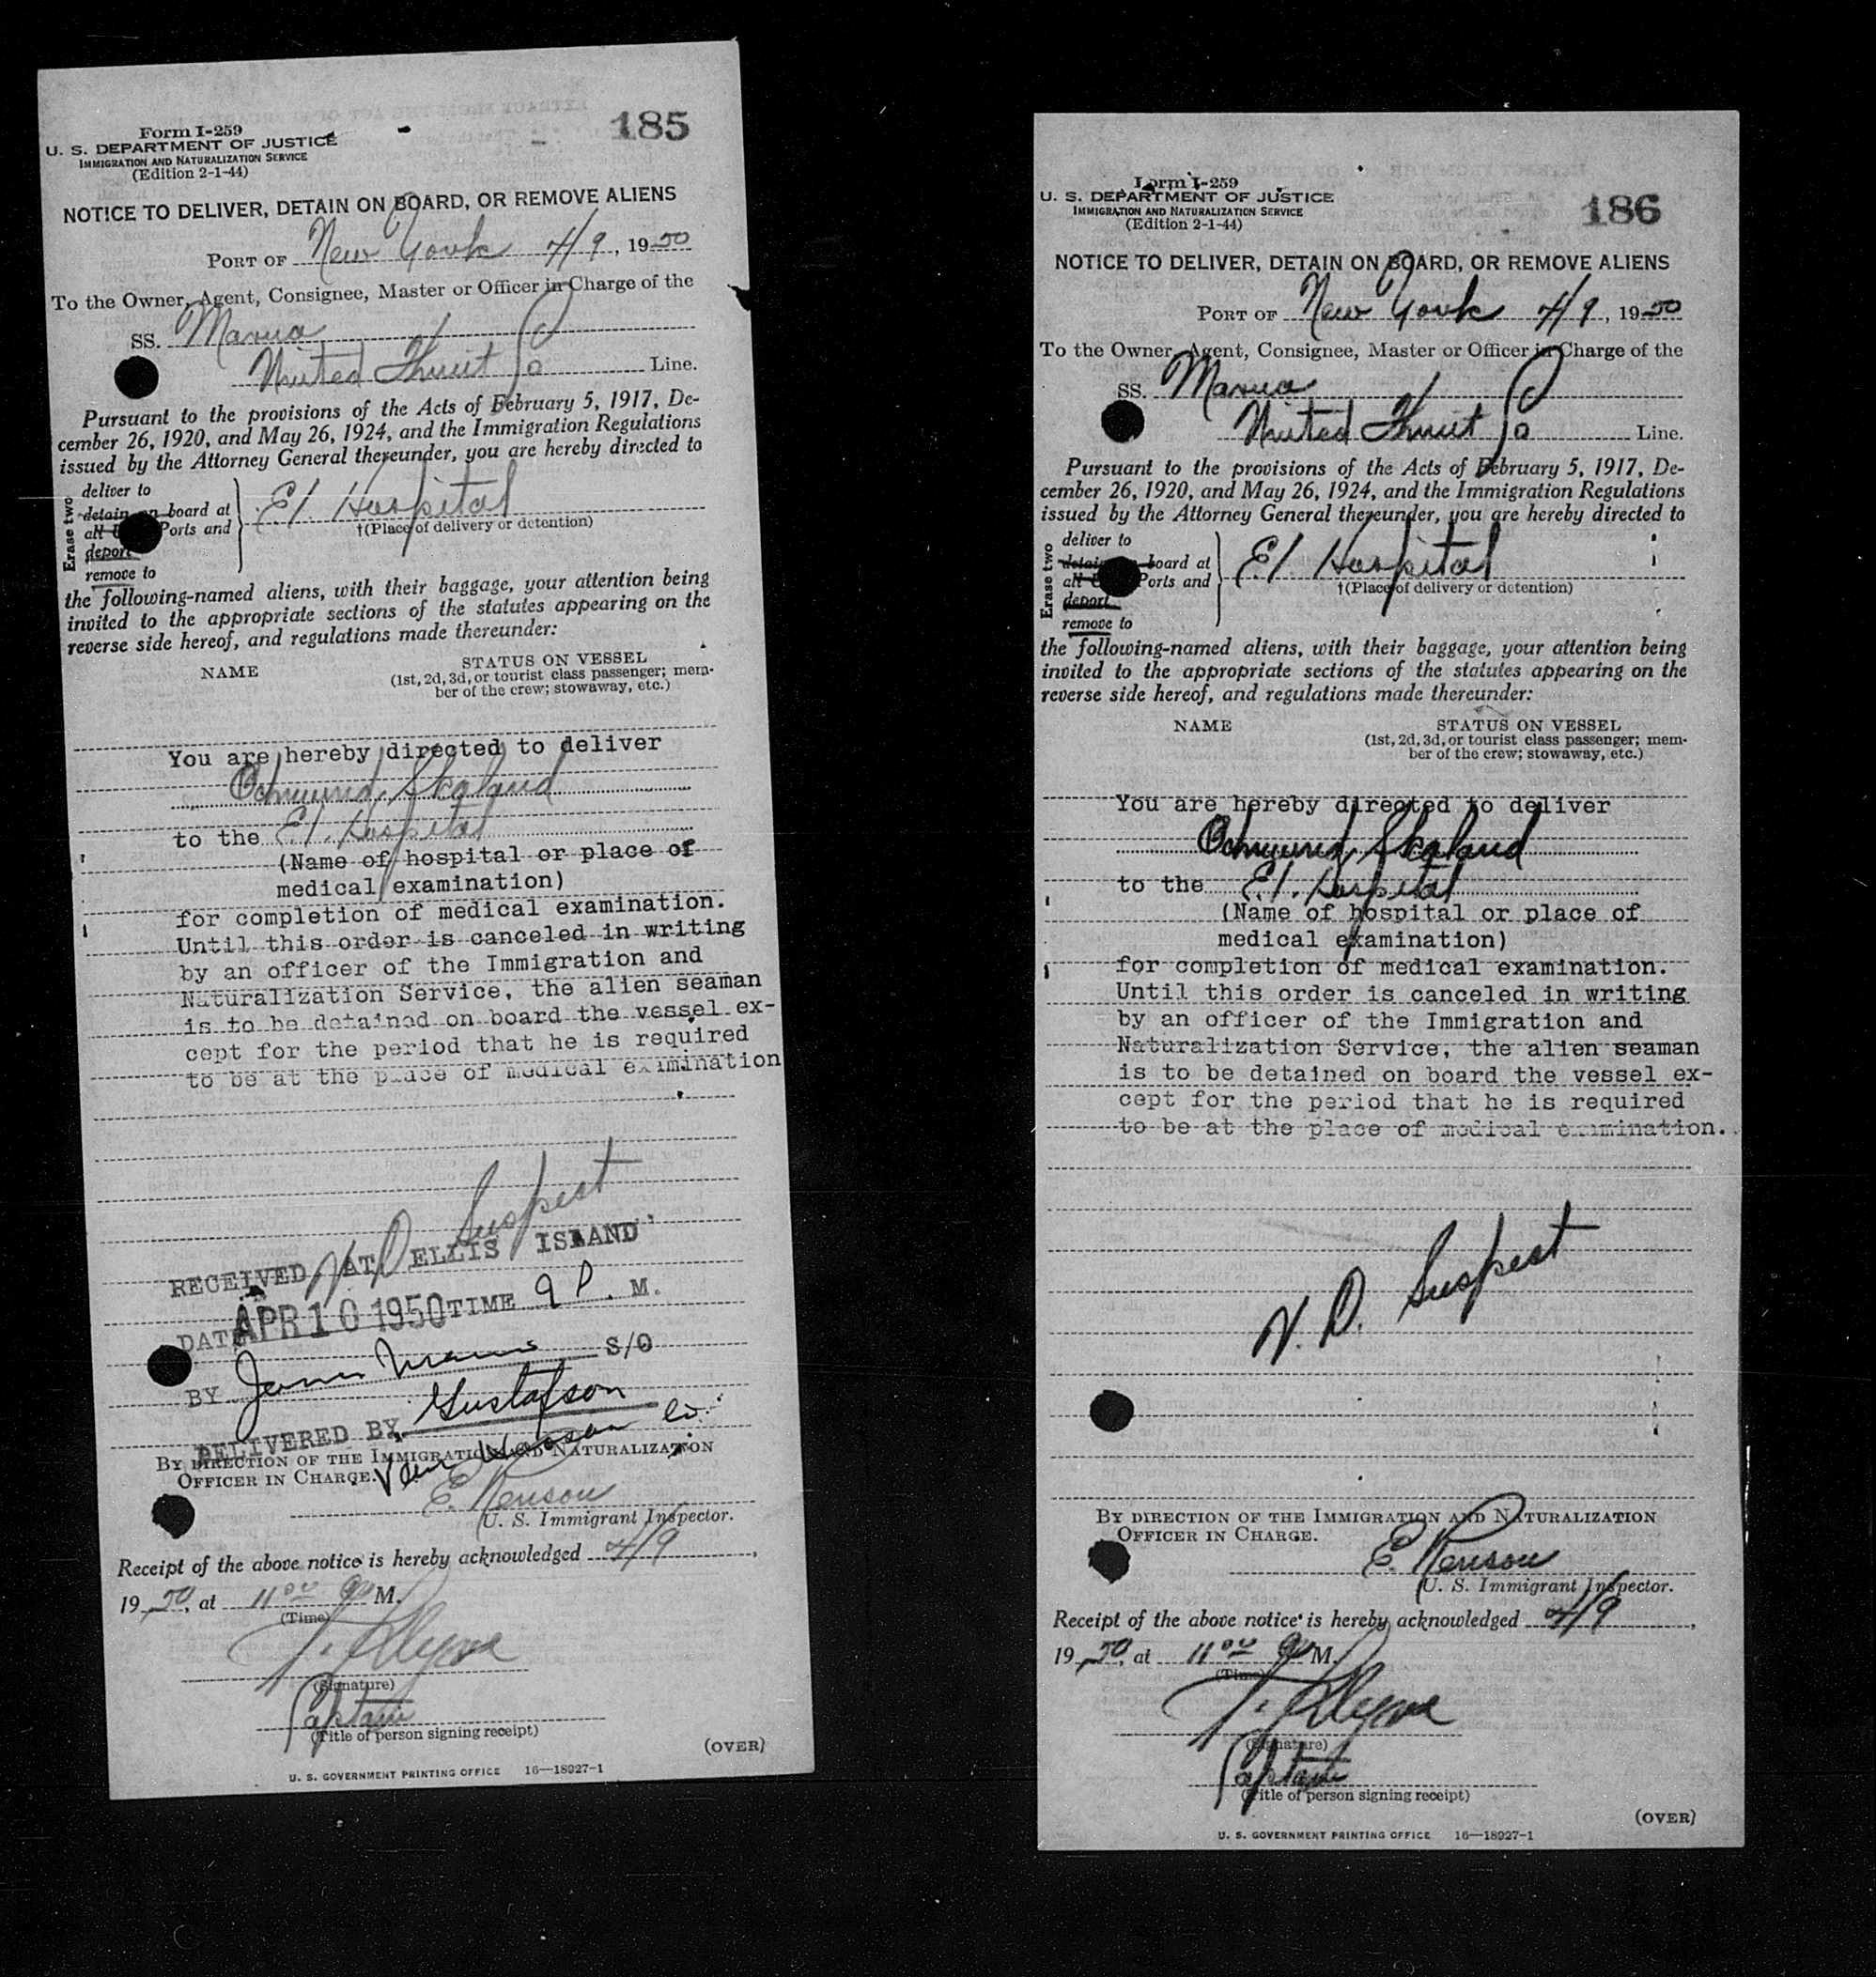 185
Form I-259
U. S. DEPARTMENT OF JUSTICE
IMMIGRATION AND NATURALIZATION SERVICE
(Edition 2-1-44)
NOTICE TO DELIVER, DETAIN ON BOARD, OR REMOVE ALIENS
PORT OF New York 4/9, 1950
To the Owner, Agent, Consignee, Master or Officer in Charge of the
SS.
United Fruit Co Line.
Pursuant to the provisions of the Acts of February 5, 1917, De-
cember 26, 1920, and May 26, 1924, and the Immigration Regulations
issued by the Attorney General thereunder, you are hereby directed to
Erase two
deliver to
detain on board at
all Ports and
deport
remove to
E.I. Hospital
†(Place of delivery or detention)
the following-named aliens, with their baggage, your attention being
invited to the appropriate sections of the statutes appearing on the
reverse side hereof, and regulations made thereunder:
NAME
STATUS ON VESSEL
(1st, 2d, 3d, or tourist class passenger; mem-
ber of the crew; stowaway, etc.)
You are hereby directed to deliver
Skaland
to the E.I. Hospital
(Name of hospital or place of
medical examination)
for completion of medical examination.
Until this order is canceled in writing
by an officer of the Immigration and
Naturalization Service, the alien seaman
is to be detained on board the vessel ex-
cept for the period that he is required
to be at the place of medical examination
V. D. Suspect
RECEIVED AT ELLIS ISLAND
DATE APR 10 1950 TIME 9 P. M.
BY S/O
DELIVERED BY Gustafson
BY DIRECTION OF THE IMMIGRATION AND NATURALIZATION
OFFICER IN CHARGE.
E.
U. S. Immigrant Inspector.
Receipt of the above notice is hereby acknowledged 4/9,
1950, at 11 00 M.
(Time)
(Signature)
Captain
(Title of person signing receipt)
(OVER)
U. S. GOVERNMENT PRINTING OFFICE 16—18927-1
186
Form I-259
U. S. DEPARTMENT OF JUSTICE
IMMIGRATION AND NATURALIZATION SERVICE
(Edition 2-1-44)
NOTICE TO DELIVER, DETAIN ON BOARD, OR REMOVE ALIENS
PORT OF New York 4/9, 1950
To the Owner, Agent, Consignee, Master or Officer in Charge of the
SS.
United Fruit Co Line.
Pursuant to the provisions of the Acts of February 5, 1917, De-
cember 26, 1920, and May 26, 1924, and the Immigration Regulations
issued by the Attorney General thereunder, you are hereby directed to
Erase two
deliver to
detain board at
all Ports and
deport
remove to
E.I. Hospital
†(Place of delivery or detention)
the following-named aliens, with their baggage, your attention being
invited to the appropriate sections of the statutes appearing on the
reverse side hereof, and regulations made thereunder:
NAME
STATUS ON VESSEL
(1st, 2d, 3d, or tourist class passenger; mem-
ber of the crew; stowaway, etc.)
You are hereby directed to deliver
Skaland
to the E.I. Hospital
(Name of hospital or place of
medical examination)
for completion of medical examination.
Until this order is canceled in writing
by an officer of the Immigration and
Naturalization Service, the alien seaman
is to be detained on board the vessel ex-
cept for the period that he is required
to be at the place of medical examination.
V. D. Suspect
BY DIRECTION OF THE IMMIGRATION AND NATURALIZATION
OFFICER IN CHARGE.
E.
U. S. Immigrant Inspector.
Receipt of the above notice is hereby acknowledged 4/9,
1950, at 11 00 M.
(Time)
(Signature)
Captain
(Title of person signing receipt)
(OVER)
U. S. GOVERNMENT PRINTING OFFICE 16—18927-1